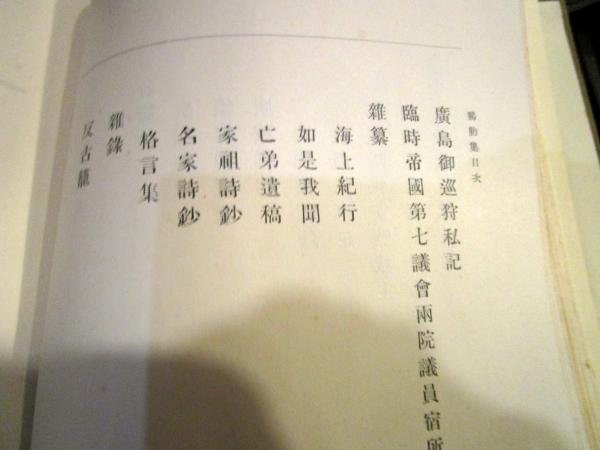 廣島御巡狩私記
臨時帝國第七議會兩院議員宿所
雜纂
海上紀行
如是我聞
亡弟遺稿
家祖詩鈔
名家詩鈔
格言集
雜錄
反古籠